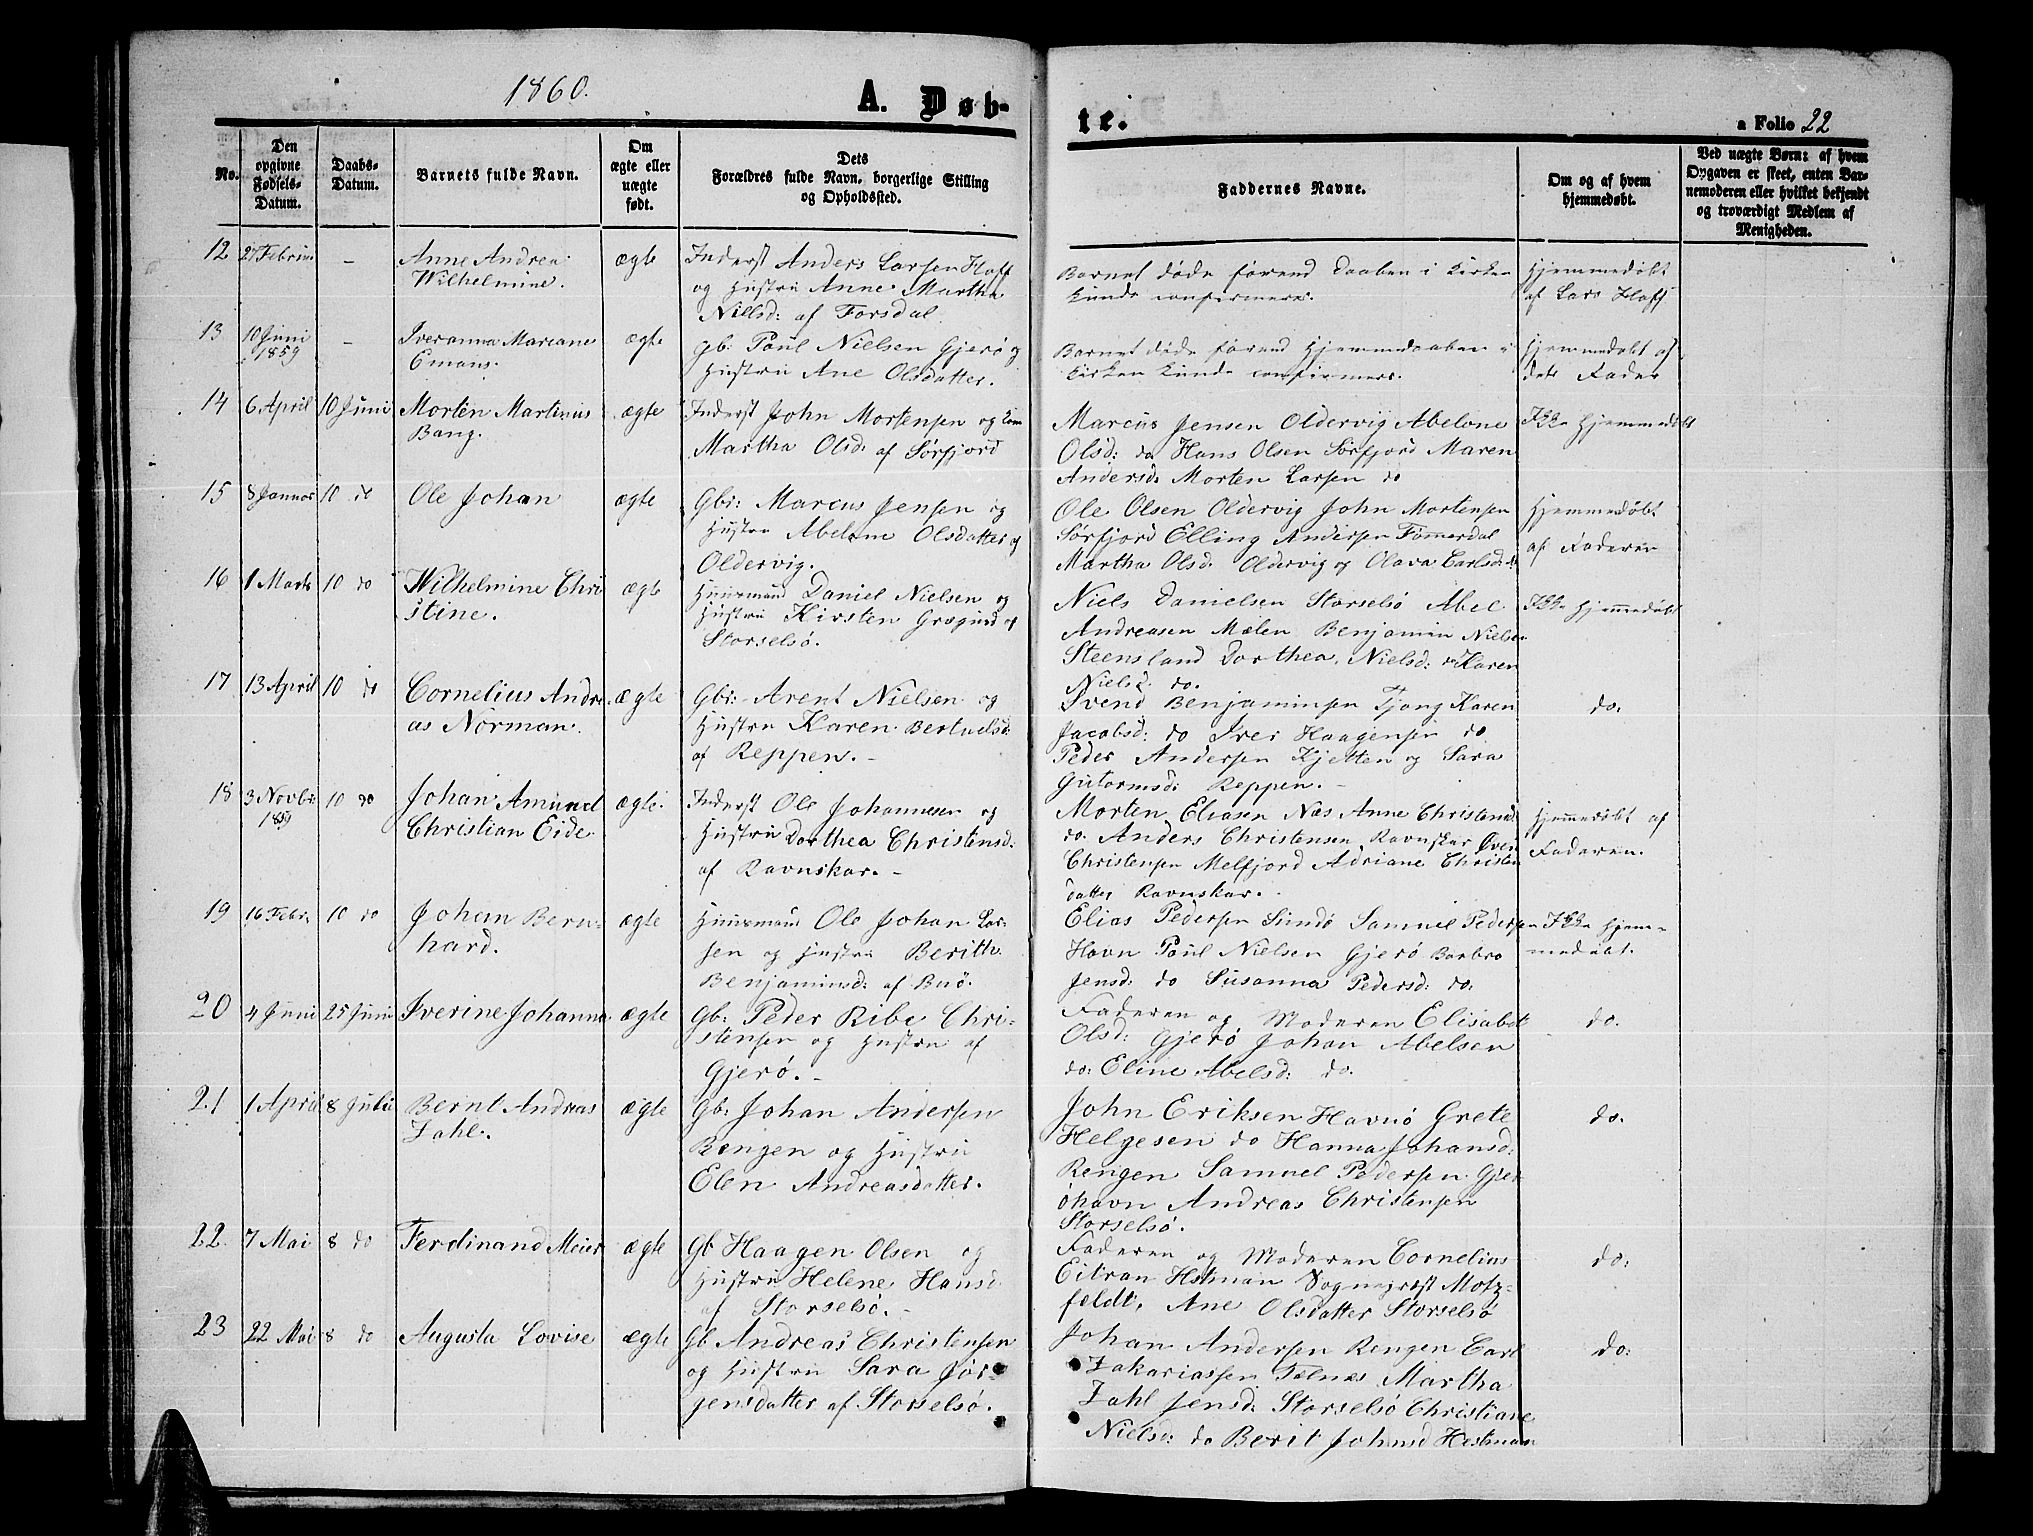 1860.
A. Døb-
te.
a Folio 22
No.
Den opgivne Fødsels-Datum.
Daabs-Datum.
Barnets fulde Navn.
Om ægte eller uægte født.
Dets Forældres fulde Navn, borgerlige Stilling og Opholdssted.
Faddernes Navne.
Om og af hvem hjemmedøbt.
Ved uægte Børn: af hvem Opgaven er skeet, enten Barnemoderen eller hvilket bekjendt og troværdigt Medlem af Menigheden.
12 27 Februar – Anne Andrea ægte Inderst Anders Larsen Hoff Barnet døde førend Daaben i Kirken Hjemmedøbt
Wilhelmine. og Hustru Anne Martha kunde confirmeres. af Lars Hoff
Nielsd: af Forsdal.
13 10 Juni – Iveranna Mariane ægte gb: Paul Nielsen Gjerø og Barnet døde førend Hjemmedaaben i Hjemmedøbt af
1859 Emans. Hustru Ane Olsdatter. Kirken kunde confirmeres. dets Fader
14 6 April 10 Juni Morten Martinus ægte Inderst John Mortensen og Kone Marcus Jensen Oldervig Abelone Ikke Hjemmedøbt
Bang. Martha Olsd: af Sørfjord Olsd: do Hans Olsen Sørfjord Maren
Andersd: Morten Larsen do
15 8 Januar 10 do Ole Johan ægte Gbr: Marcus Jensen og Ole Olsen Oldervig John Mortensen Hjemmedøbt
Hustru Abelone Olsdatter af Sørfjord Elling Andersen Tømmerdal af Faderen
Oldervig. Martha Olsd: Oldervig og Olava Carlsd: do
16 1 Marts 10 do Wilhelmine Chri ægte Huusmand Daniel Nielsen og Niels Danielsen Storselsø Abel Ikke Hjemmedøbt
stine. Hustru Kirsten Gregusd af Andreasen Mælen Benjamin Nielsen
Storselsø. Steensland Dorthea Nielsd: do Karen
Nielsd: do.
17 13 April 10 do Cornelius Andre ægte Gbr: Arent Nielsen og Svend Benjaminsen Tjong Karen do.
as Norman. Hustru Karen Bertuelsd: Jacobsd: do Iver Haagensen do
af Reppen. Peder Andersen Kjetten og Sara
Gutormsd: Reppen.
18 3 Novbr 10 do Johan Amund ægte. Inderst Ole Johannesen og Morten Eliasen Næs Anne Christensd: Hjemmedøbt af
1859 Christian Eide Hustru Dorthea Christensd: do. Anders Christensen Ravnskar Sven Faderen.
af Ravnskar. Christensen Melfjord Adriane Christen
datter Ravnskar.
19 16 Febr. 10 do Johan Bern- ægte Huusmand Ole Johan Lar- Elias Pedersen Sundø Samuel Pedersen Ikke Hjem-
hard. sen og Hustru Berith Havn Paul Nielsen Gjerø Barbro medøbt.
Benjaminsd: af Buø. Jensd: do Susanna Pedersd: do.
20 4 Juni 25 Juni Iverine Johanna ægte Gb: Peder Ribe Chri- Faderen og Moderen Elisabet do.
stensen og Hustru af Olsd: Gjerø Johan Abelsen
Gjerø. do: Eline Abelsd: do.
21 1 April 8 Julii Bernt Andreas ægte Gb: Johan Andersen John Eriksen Havnø Grete do.
Zahl. Rengen og Hustru Helgesen do Hanna Johansd:
Elen Andreasdatter. Rengen Samuel Pedersen Gjer
øhavn Andreas Christensen
Storselsø.
22. 7 Mai 8 do Ferdinand Meier ægte Gb Haagen Olsen og Faderen og Moderen Cornelius do:
Hustru Helene Hansd Eitran Hstman Sogneprest Motz-
af Storselsø. feldt, Ane Olsdatter Storselsø
23 22 Mai 8 do Augusta Lovise ægte Gb Andreas Christensen Johan Andersen Rengen Carl do:
og Hustru Sara Jør- Zakariassen Telnes Martha
gensdatter af Storselsø. Zahl Jensd: Storselsø Christiane
Nielsd: do Berit Johnsd Hestman